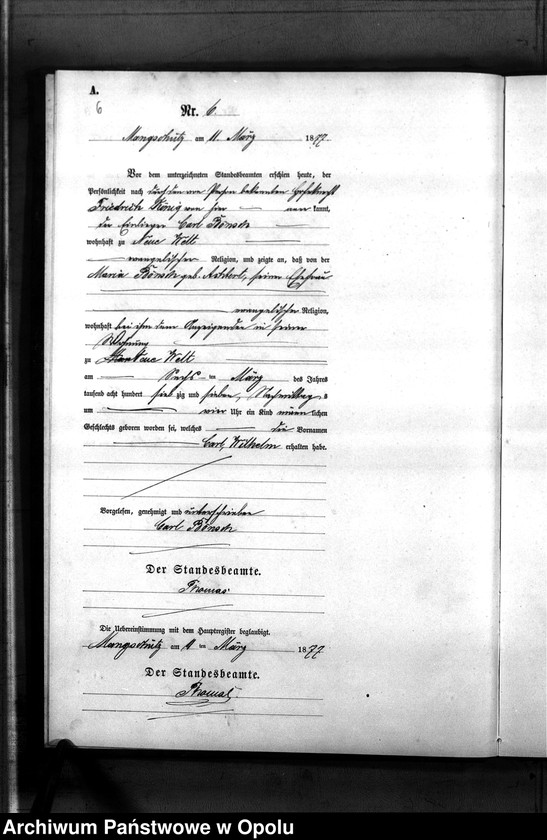 A.
6
Nr. 6.
Mangschütz am 11. März 1877.
Vor dem unterzeichneten Standesbeamten erschien heute, der
Persönlichkeit nach durch den
Friedrich König von hier anerkannt,
der Einlieger Carl Bönsch
wohnhaft zu Neue Welt
evangelischer Religion, und zeigte an, daß von der
Maria Bönsch geb. seiner Ehefrau
evangelischer Religion,
wohnhaft bei ihm dem Anzeigenden in seiner
Wohnung
zu Neue Welt
am Sechs ten März des Jahres
tausend acht hundert sieb zig und sieben, Nachmittag s
um vier Uhr ein Kind männlichen
Geschlechts geboren worden sei, welches die Vornamen
Carl, Wilhelm erhalten habe.
Vorgelesen, genehmigt und unterschrieben
Carl Bönsch
Der Standesbeamte.
Thomas
Die Uebereinstimmung mit dem Hauptregister beglaubigt.
Mangschütz am ten März 1877
Der Standesbeamte.
Thomas
Archiwum Państwowe w Opolu